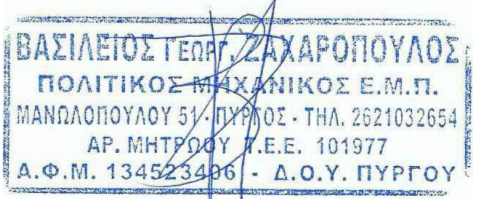 ΒΑΣΙΛΕΙΟΣ ΓΕΩΡΓ. ΖΑΧΑΡΟΠΟΥΛΟΣ
ΠΟΛΙΤΙΚΟΣ ΜΗΧΑΝΙΚΟΣ Ε.Μ.Π.
ΜΑΝΩΛΟΠΟΥΛΟΥ 51 - ΠΥΡΓΟΣ - ΤΗΛ. 2621032654
ΑΡ. ΜΗΤΡΩΟΥ Τ.Ε.Ε. 101977
Α.Φ.Μ. 134523406 - Δ.Ο.Υ. ΠΥΡΓΟΥ